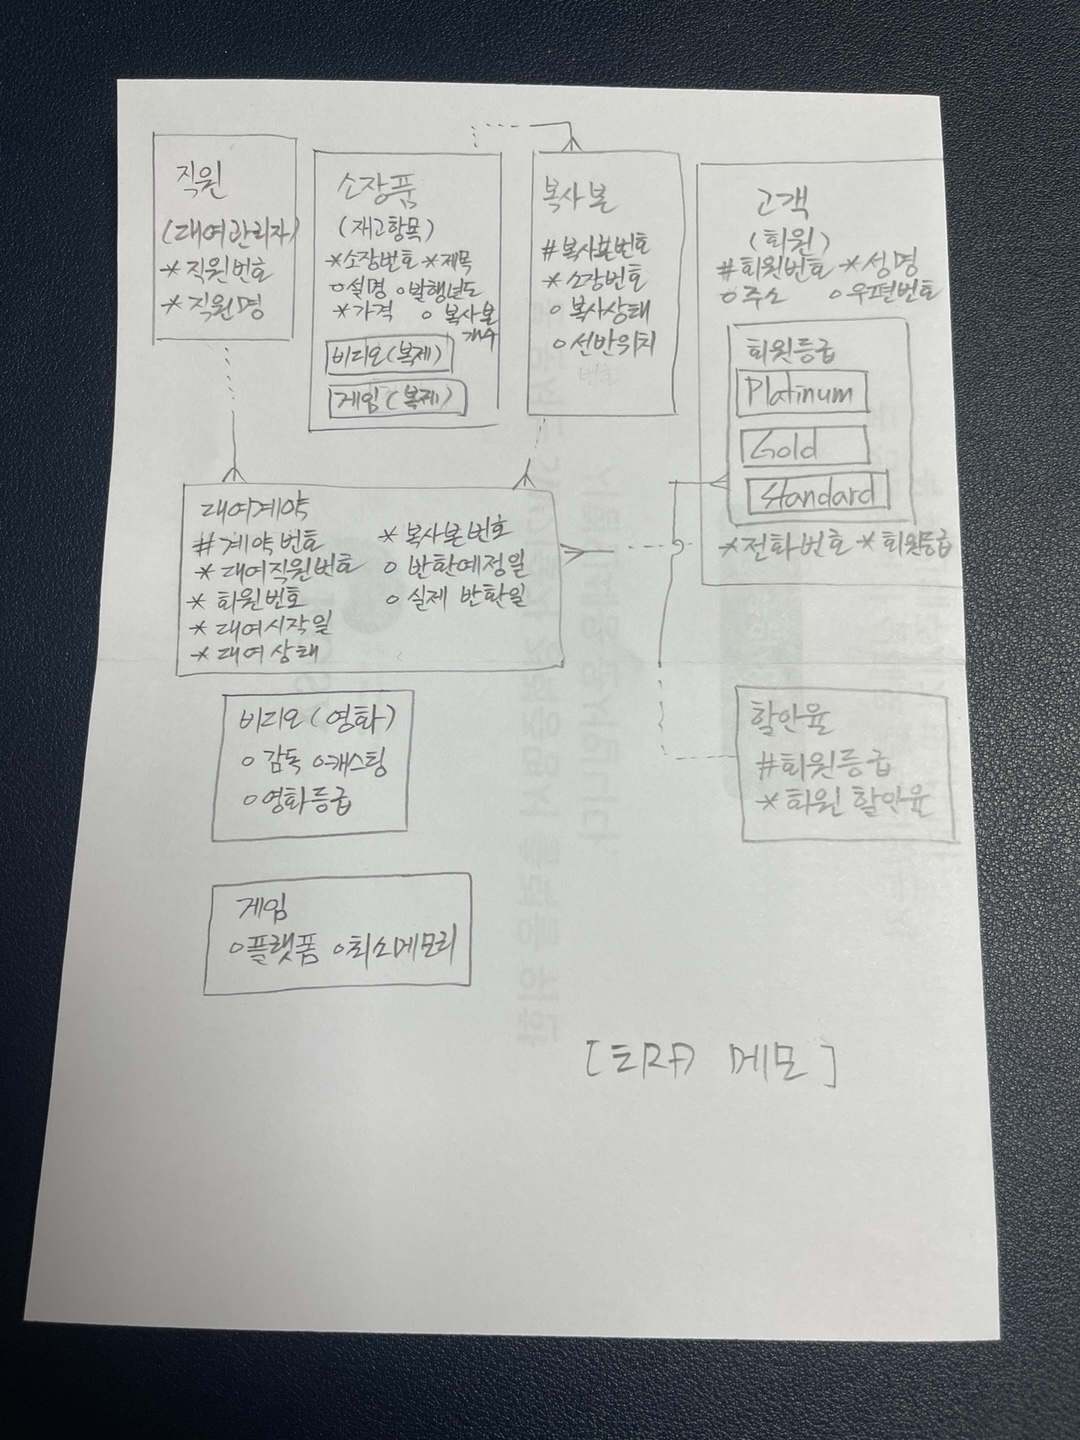 직원
(대여관리자)
* 직원번호
* 직원명
소장품
(재고항목)
*소장번호 *제목
o설명 o발행년도
*가격 o 복사본
개수
비디오(복제)
게임(복제)
복사본
#복사본번호
* 소장번호
o 복사상태
o 선반위치
고객
(회원)
#회원번호 *성명
o주소 o우편번호
회원등급
Platinum
Gold
Standard
*전화번호 *회원등급
대여계약
# 계약번호
* 대여직원번호
* 회원번호
* 대여시작일
* 대여상태
* 복사본번호
o 반환예정일
o 실제 반환일
비디오(영화)
o 감독 o캐스팅
o영화등급
할인율
#회원등급
* 회원 할인율
게임
o플랫폼 o최소메모리
[ERD 메모]